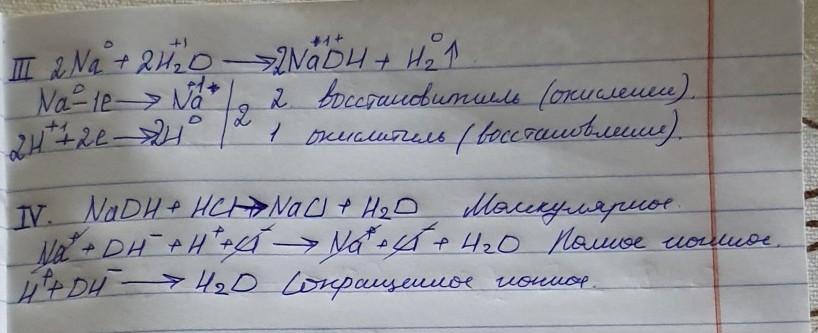 III 2Na⁰ + 2H₂⁺¹O → 2Na⁺¹OH + H₂⁰↑
Na⁰ - 1e → Na⁺¹ | 2 2 восстановитель (окисление).
2H⁺¹ + 2e → 2H⁰ | 1 окислитель (восстановление).
IV. NaOH + HCl → NaCl + H₂O Молекулярное.
Na⁺ + OH⁻ + H⁺ + Cl⁻ → Na⁺ + Cl⁻ + H₂O Полное ионное.
H⁺ + OH⁻ → H₂O Сокращенное ионное.